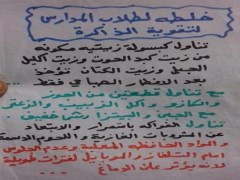 خلطه لطلاب المدارس
لتقوية الذاكرة
تناول كبسولة زيتيه مكونه
من زيت كبد الحوت وزيت اكليل
الجبل وزيت الكتان تؤخذ
بعد الافطار الصباحي فقط
مع تناول قطعتين من الجوز
والكاجو وكل الزبيب والزعتر
مع الجبن والبيض
تناول الفواكه والابتعاد عن
المشروبات الغازية والدسمة
والمواد الحافظه المعلبة وعدم الجلوس
امام التلفاز والموبايل لفترات طويلة
لانه يؤثر على الدماغ